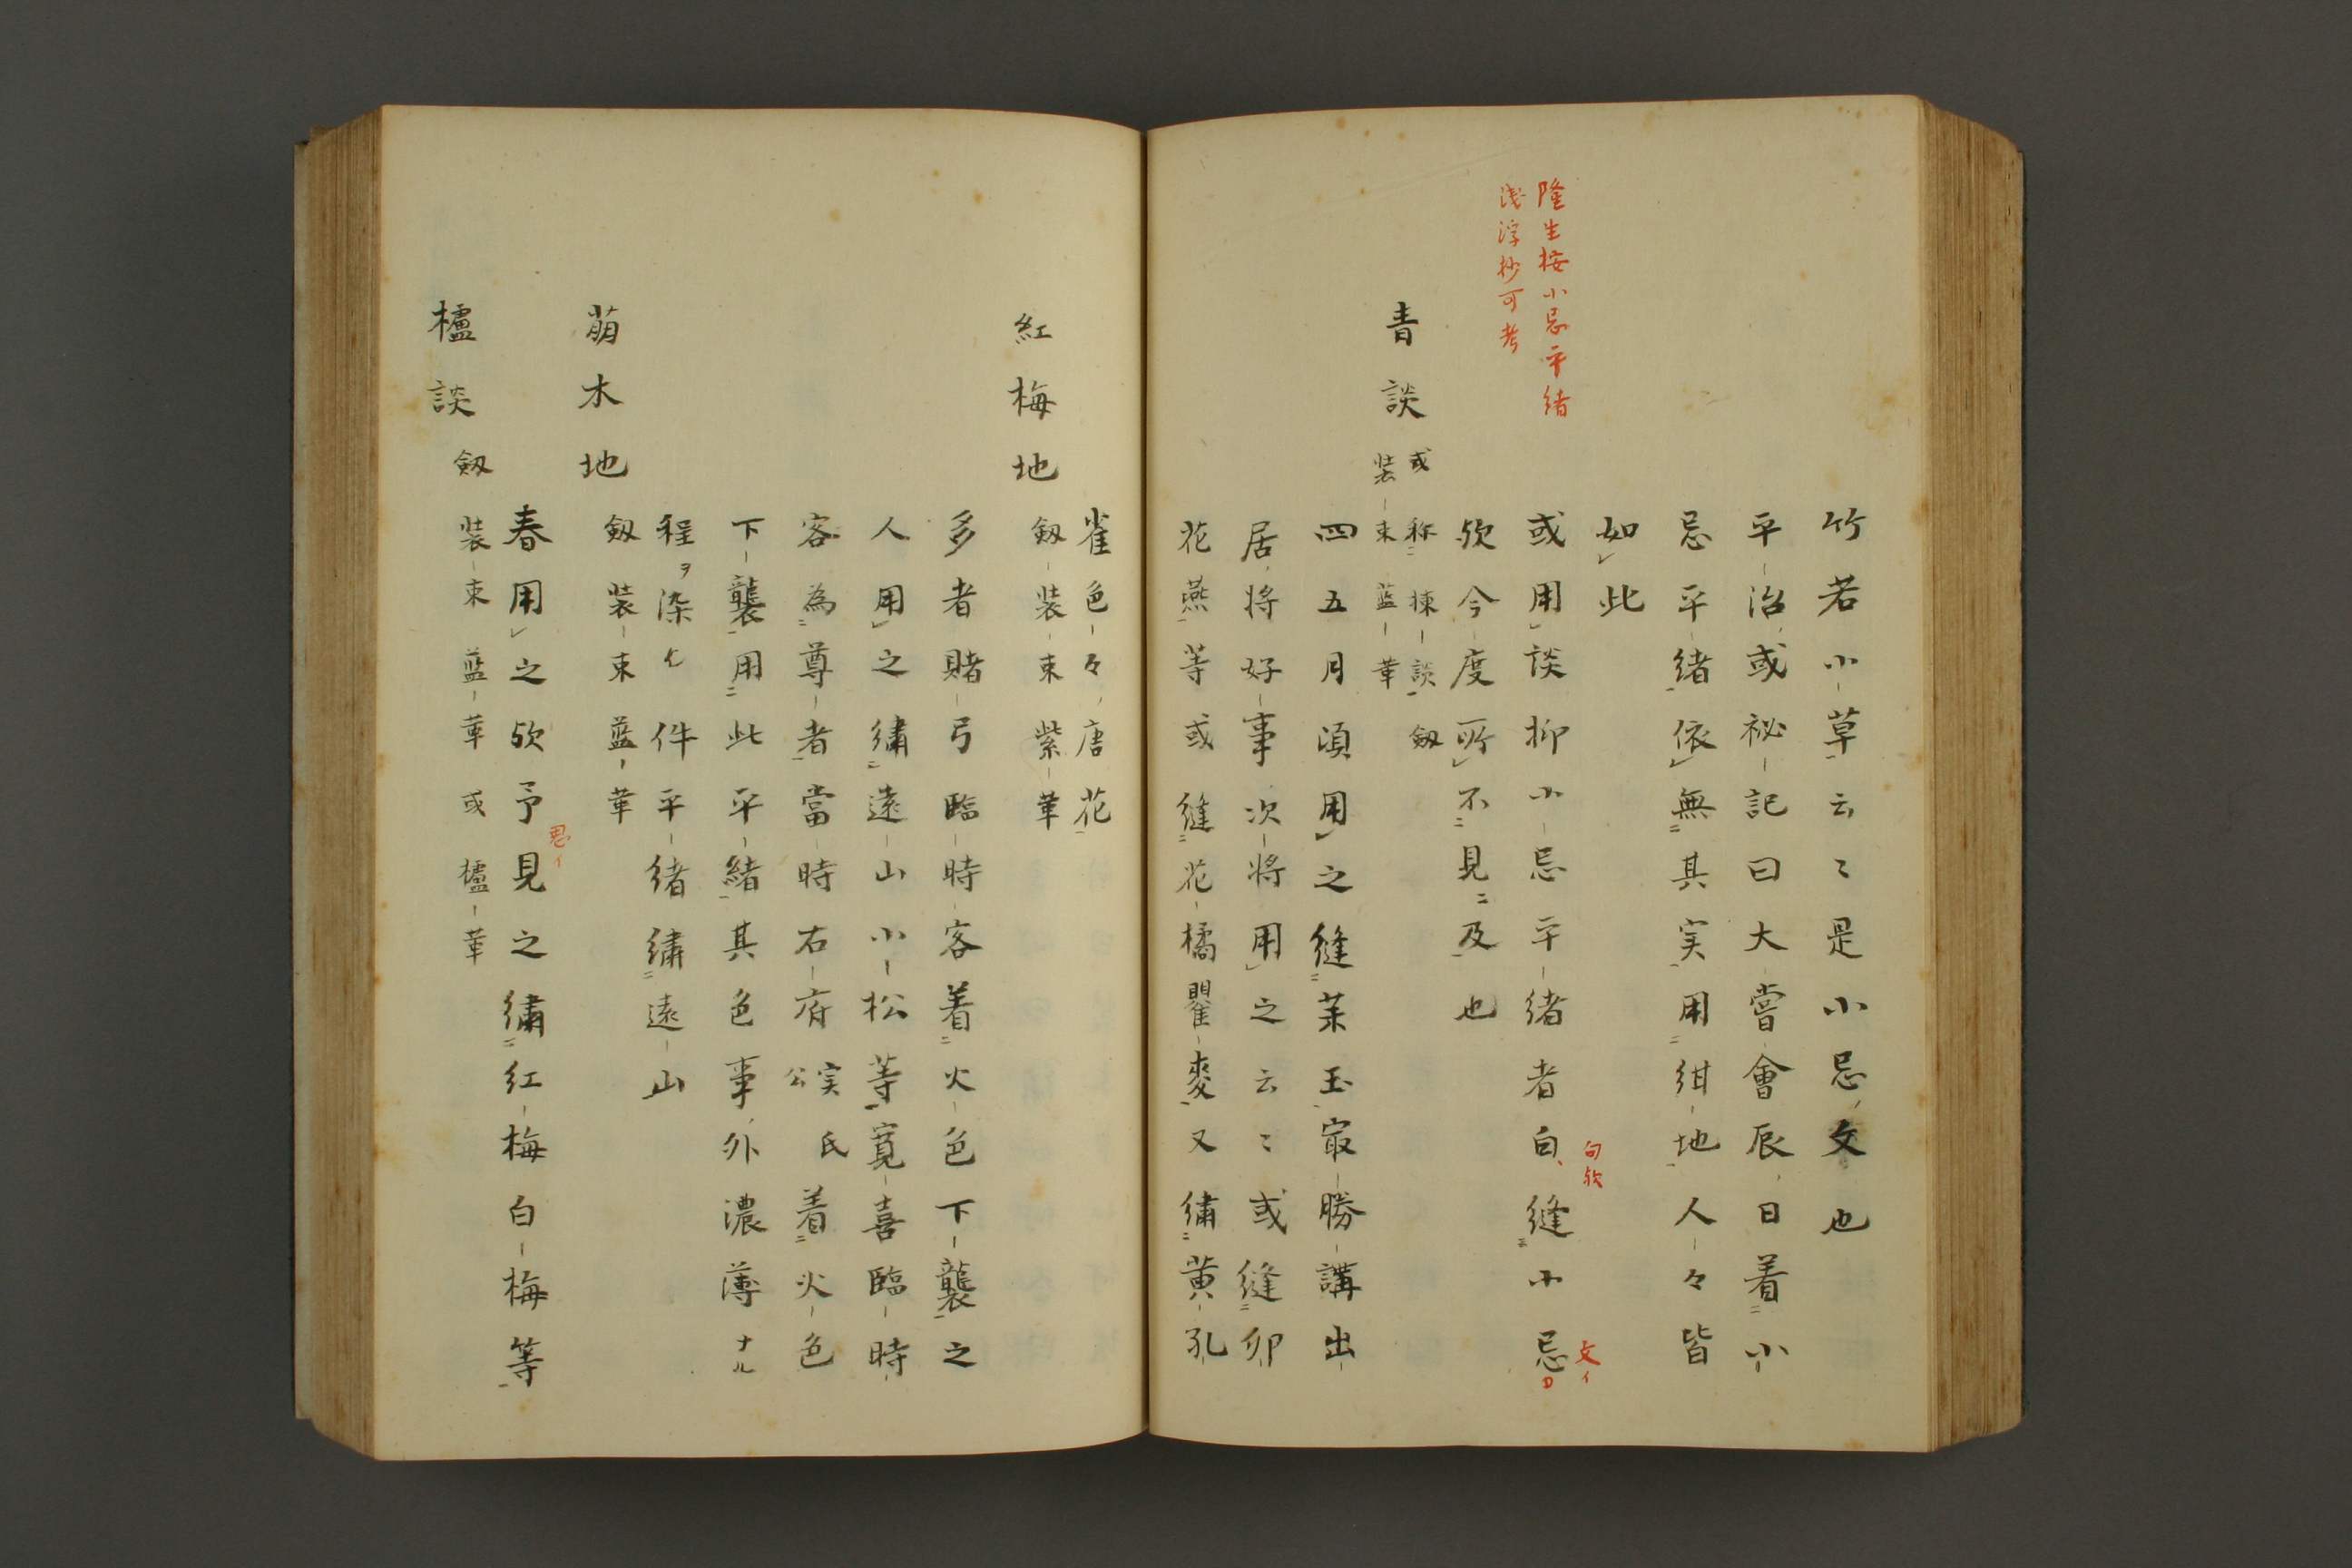 隆生桉小忌平緒
浅浮抄可考
竹若小草云〻是小忌文也
平治或祕記曰大嘗會辰日着小
忌平緒依無其実用紺地人々皆
如此
或用談抑小忌平緒者白縫小忌
句欤
文イ
欤今度所不見及也
青談
或称棟談劔
装束藍革
四五月頃用之縫菜玉冣勝講出
居将好事次将用之云〻或縫卯
花燕等或縫花橘瞿麦又繡黄孔
雀色々唐花
紅梅地
劔装束紫革
多者賭弓臨時客着火色下襲之
人用之繡遠山小松等寛喜臨時
客為尊者當時右府実氏公着火色
下襲用此平緒其色事外濃薄ナル
程ヲ染七件平緒繡遠山
萠木地
劔装束藍革
春用之欤予見之繡紅梅白梅等
思イ
櫨談
劔装束藍革或櫨革